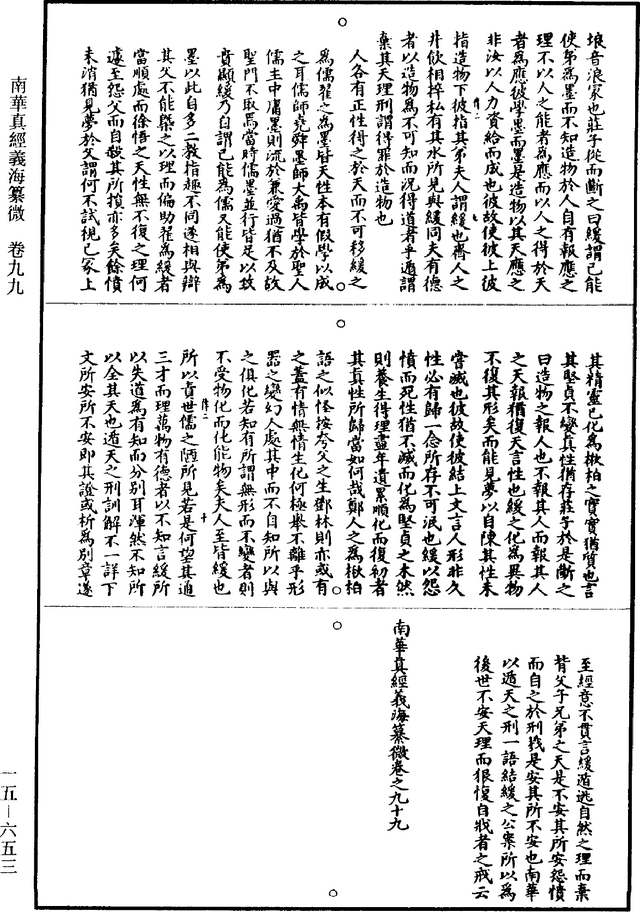 南華真經義海纂微 卷九九
一五—六五三
埌音浪冢也莊子從而斷之曰緩謂已能
使弟為墨而不知造物於人自有報應之
理不以人之能者為應而以人之得於天
者為應彼學墨而墨是造物以其天應之
非汝以人力資給而成也彼故使彼上彼
指造物下彼指其弟夫人謂緩也齊人之
井飲相捽私有其水所見與緩同夫有德
者以造物為不可知而況得道者乎遁謂
棄其天理刑謂得罪於造物也
人各有正性得之於天而不可移緩之
為儒翟之為墨皆天性本有假學以成
之耳儒師堯舜墨師大禹皆學於聖人
儒主中庸墨則流於兼愛過猶不及故
聖門不取焉當時儒墨並行皆足以致
貴顯緩乃自謂已能為儒又能使弟為
墨以此自多二教指趣不同遂相與辯
其父不能槩之以理而偏助翟為緩者
當順處而徐悟之天性無不復之理何
遽至怨父而自殺其所損亦多矣餘憤
未消猶見夢於父謂何不試視已冢上
其精靈已化為楸柏之實實猶質也言
其堅貞不變真性猶存莊子於是斷之
曰造物之報人也不報其人而報其人
之天報猶復天言性也緩之化為異物
不復其形矣而能見夢以自陳其性未
嘗滅也彼故使彼結上文言人形非久
性必有歸一念所存不可泯也緩以怨
憤而死性猶不滅而化為堅貞之木然
則養生得理盡年遺累順化而復初者
其真性所歸當如何哉鄭人之為楸柏
語之似怪按夸父之生鄧林則亦或有
之蓋有情無情生化何極舉不離乎形
器之變幻人處其中而不自知所以與
之俱化若知有所謂無形而不變者則
不受物化而化能物矣夫人至皆緩也
所以責世儒之陋所見若是何望其通
三才而理萬物有德者以不知言緩所
以失道為有知而分別耳渾然不知所
以全其天也遁天之刑訓解不一詳下
文所安所不安即其證或析為別章遂
至經意不貫言緩遁逃自然之理而棄
背父子兄弟之天是不安其所安怨憤
而自之於刑戮是安其所不安也南華
以遁天之刑一語結緩之公案所以為
後世不安天理而狠愎自戕者之戒云
南華真經義海纂微卷之九十九